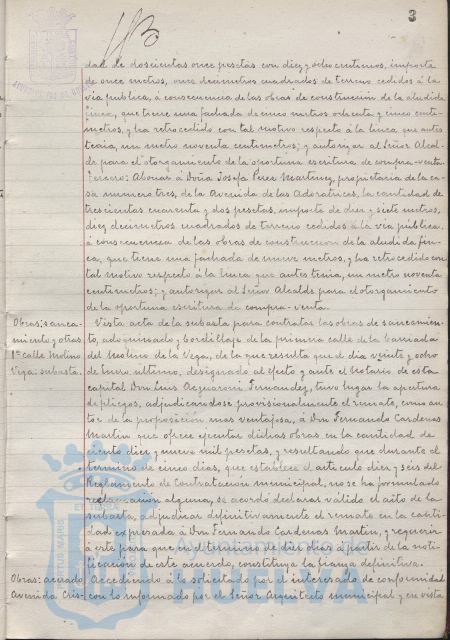 3
dad de doscientas once pesetas con diez y ocho centimos, importe
de once metros, once decimetros cuadrados de terreno cedidos á la
via publica, á consecuencia de las obras de construcción de la aludida
finca, que tiene una fachada de cinco metros ochenta y cinco centi-
metros, y ha retrocedido con tal motivo respecto á la linea que antes
tenia, un metro noventa centimetros; y autorizar al Señor Alcal-
de para el otorgamiento de la oportuna escritura de compra-venta
Tercero: Abonar á Doña Josefa Perez Martinez, propietaria de la ca-
sa numero tres, de la Avenida de las Adoratrices, la cantidad de
trescientas cuarenta y dos pesetas, importe de diez y siete metros,
diez decimetros cuadrados de terreno cedidos á la via pública,
á consecuencia de las obras de construcción de la aludida fin-
ca, que tiene una fachada de nueve metros, y ha retrocedido con
tal motivo respecto á la linea que antes tenia, un metro noventa
centimetros; y autorizar al Señor Alcalde para el otorgamiento
de la oportuna escritura de compra-venta.
Obras: sanea-
miento y otras
1ª calle Molino
Vega: subasta.
Vista acta de la subasta para contratar las obras de saneamien-
to, adoquinado y bordillaje de la primera calle de la barriada
del Molino de la Vega, de la que resulta que el dia veinte y ocho
de Enero último, designado al efecto y ante el Notario de esta
capital Don Luis Azcarroni Fernandez, tuvo lugar la apertura
de pliegos, adjudicandose provisionalmente el remate, como au-
tor de la proposición mas ventajosa, á Don Fernando Cardenas
Martin que ofrece ejecutar dichas obras en la cantidad de
ciento diez y nueve mil pesetas, y resultando que durante el
termino de cinco dias, que establece el articulo diez y seis del
Reglamento de Contratación municipal, no se ha formulado
reclamación alguna, se acordó declarar válido el acto de la
subasta, adjudicar definitivamente el remate en la canti-
dad expresada á Don Fernando Cardenas Martin, y requerir
á este para que en termino de diez dias á partir de la noti-
ficación de este acuerdo, constituya la fianza definitiva.
Obras: acerado
Avenida Cris-
Accediendo á lo solicitado por el interesado de conformidad
con lo informado por el Señor Arquitecto municipal y en vista